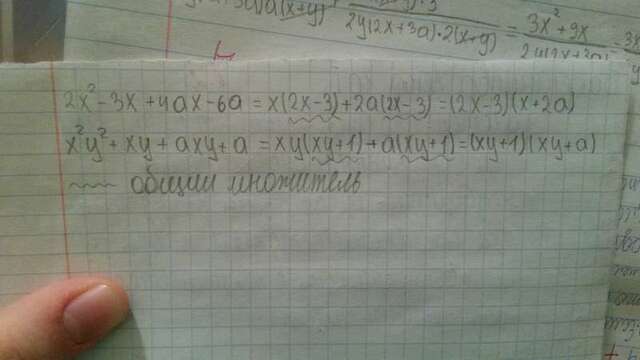 a(x+y)
2y(2x+3a)·2(x+y)
= 3x²+9x
2x²-3x+4ax-6a = x(2x-3)+2a(2x-3)=(2x-3)(x+2a)
x²y²+xy+axy+a = xy(xy+1)+a(xy+1)=(xy+1)(xy+a)
общий множитель